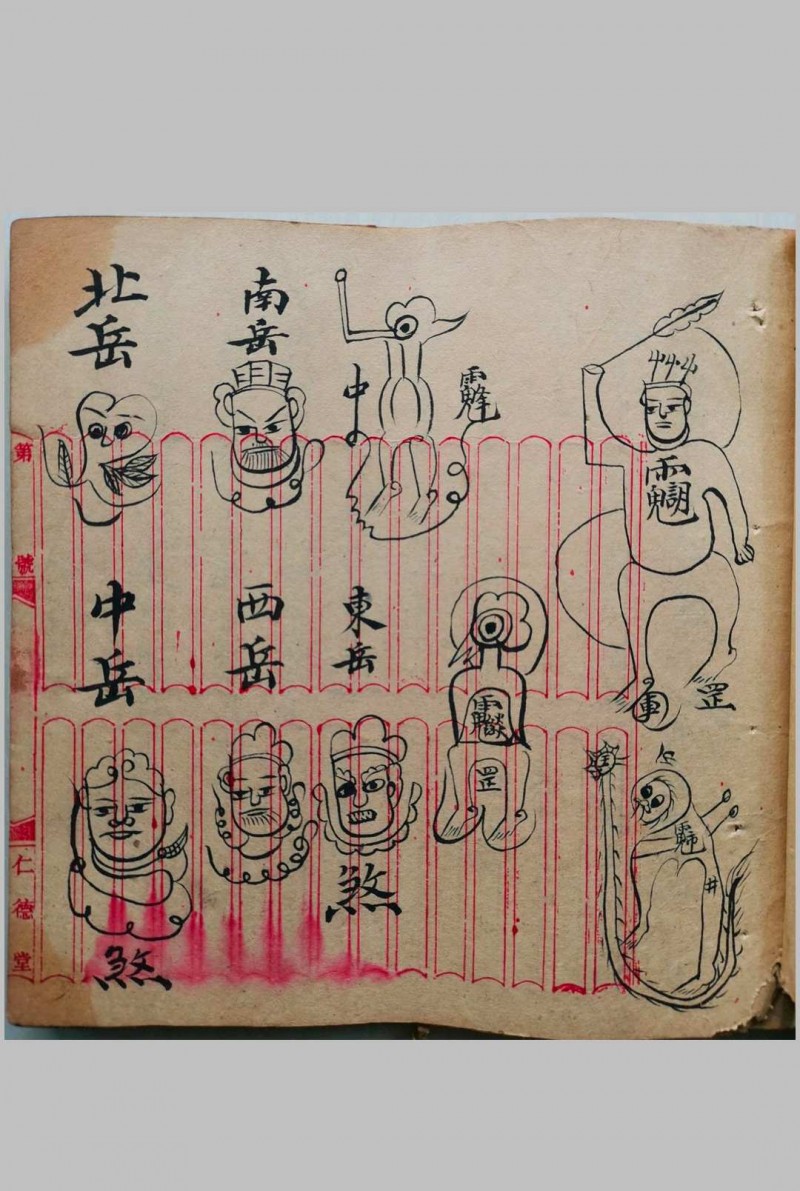 北岳
南岳
中
中岳
西岳
東岳
煞
煞
罡
罡
車
井
第
號
仁德堂